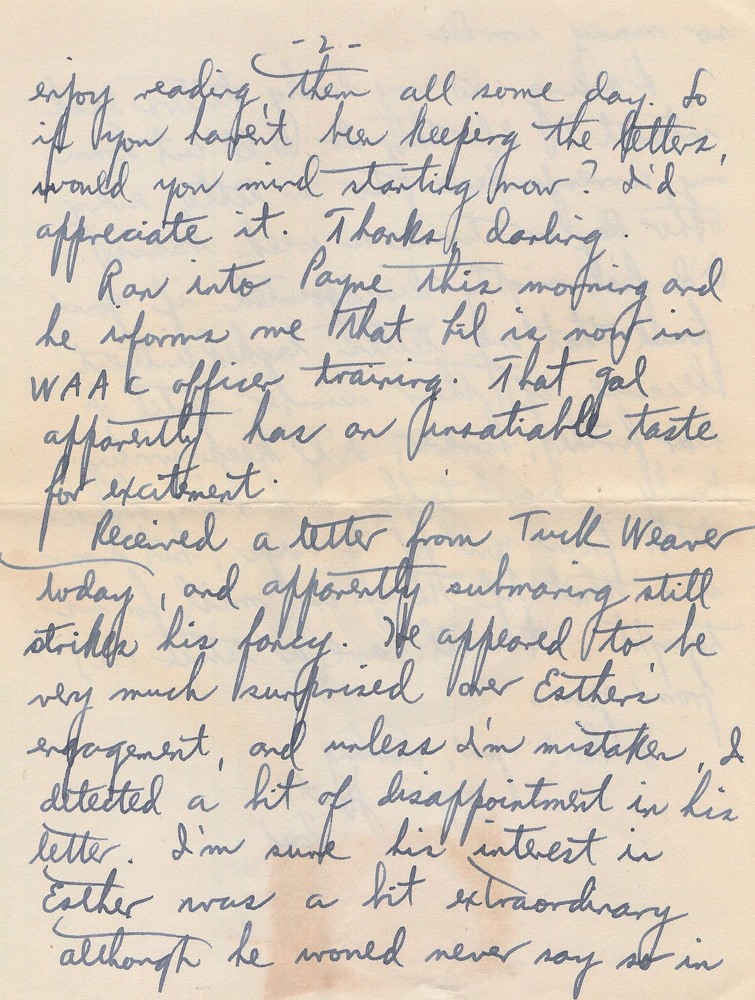 - 2 -
enjoy reading them all some day. So
if you haven't been keeping the letters,
would you mind starting now? I'd
appreciate it. Thanks, darling.
Ran into Payne this morning and
he informs me that Lil is now in
WAAC officer training. That gal
apparently has an insatiable taste
for excitement.
Received a letter from Tuck Weaver
today, and apparently submaring still
strikes his fancy. He appeared to be
very much surprised over Esther's
engagement, and unless I'm mistaken, I
detected a bit of disappointment in his
letter. I'm sure his interest in
Esther was a bit extraordinary
although he would never say so in